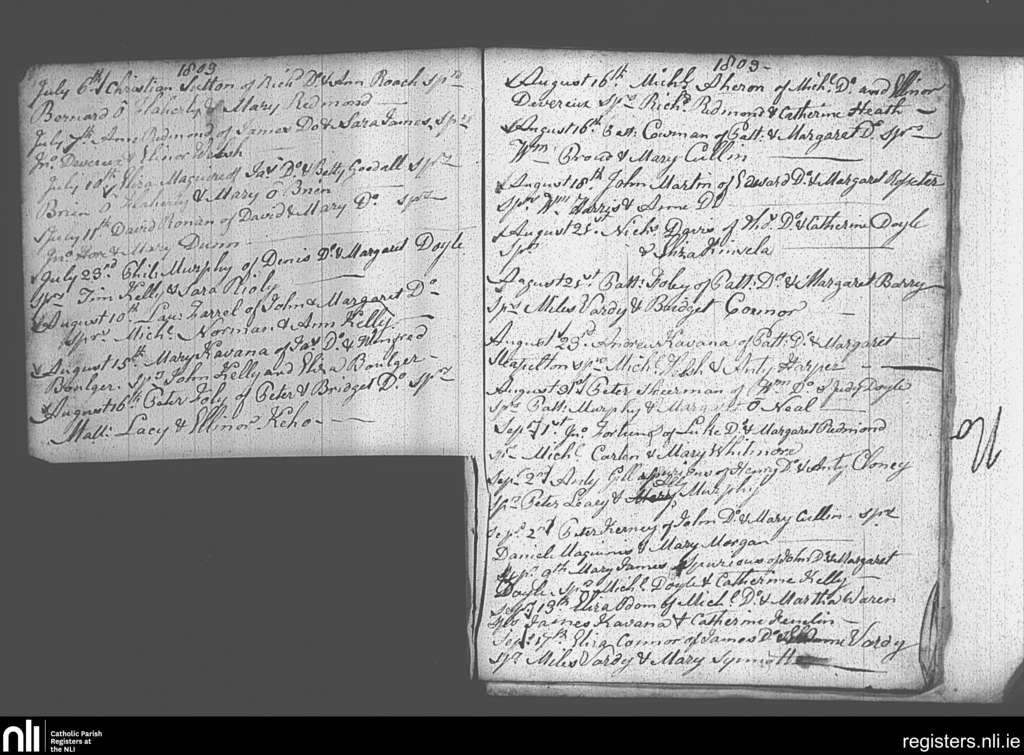 1803
July 6th Christian Sutton of Richd Do & Ann Roach sprs
Bernard O Flaherty & Mary Redmond
July 7th Anne Redmond of James Do & Sara James, sprs
Jno Devereux & Elinor Welsh
July 10th Eliza Maguire of Jas Do & Betty Goodall sprs
Brien O Flaherty & Mary O Brien
July 11th David Ronan of David & Mary Do sprs
Jno Hore & Mary Dunn
July 23rd Phil: Murphy of Denis Do & Margaret Doyle
sprs Tim Kelly & Sara Rioly
August 10th Law: Farrel of John & Margaret Do
sprs Michl Norman & Ann Kelly
August 15th Mary Kavana of Jas Do & Winifred
Boulger. sprs John Kelly and Eliza Boulger
August 16th Peter Foly of Peter & Bridget Do sprs
Matt: Lacy & Ellinor Keho
1803
August 16th Michl Aheron of Michl Do and Ellinor
Devereux sprs Richd Redmond & Catherine Heath
August 16th Patt: Cowman of Patt: & Margaret Do sprs
Wm Broad & Mary Cullin
August 18th John Martin of Edward Do & Margaret Rossiter
sprs Wm Harris & Anne Do
August 21st Nichs Davis of Thos Do & Catherine Doyle
sprs & Eliza Kinsela
August 21st Patt: Foley of Patt: Do & Margaret Barry
sprs Miles Vardy & Bridget Connor
August 23rd Andrew Kavana of Patt: Do & Margaret
Stapelton sprs Michl Welsh & Anty Harper
August 31st Peter Sheerman of Wm Do & Judy Doyle
sprs Patt: Murphy & Margaret O Neal
Sepr 1st Jno Fortune of Luke Do & Margaret Redmond
sprs Michl Carlen & Mary Whitmore
Sepr 2nd Andy Gill spurious of Henry Do & Anty Cloney
sprs Peter Leacy & Murphy
Sepr 2nd Peter Kerney of John Do & Mary Cullin. sprs
Daniel Maguinis & Mary Morgan
Sepr 9th Mary James Spurious of John Do & Margaret
Doyle sprs Michl Doyle & Catherine Kelly
Sepr 13th Eliza Odom of Michl Do & Martha Waren
James Kavana & Catherine
Sepr 17th Eliza Connor of James Do & Vardy
sprs Miles Vardy & Mary Synnott
nli
Catholic Parish
Registers at
the NLI
registers.nli.ie